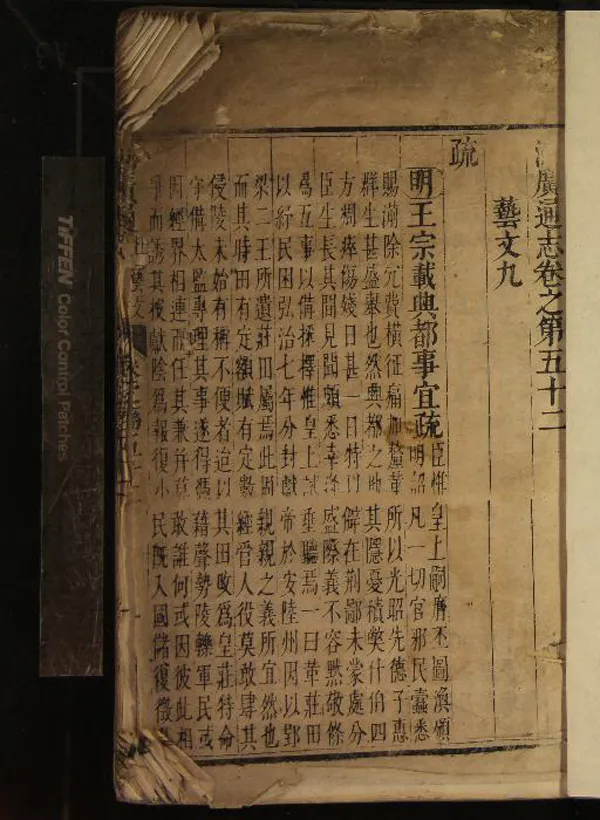 廣通志卷之第五十二
藝文九
疏
明王宗載興都事宜疏臣惟皇上嗣膺丕圖渙頒
明詔凡一切官邪民蠹悉
賜蠲除冗費橫征痛加釐革所以光昭先德子惠
群生甚盛舉也然興都之地其隱憂積弊什伯四
方稠瘁傷殘日甚一日特以僻在荊鄖未蒙處分
臣生長其間見聞頗悉幸逢盛際義不容默敬條
爲五事以備採擇惟皇上試垂聽焉一曰革莊田
以紓民困弘治七年分封獻帝於安陸州因以郢
梁二王所遺莊田屬焉此固親親之義所宜然也
而其時田有定額賦有定數經管人役莫敢肆其
侵陵未始有稱不便者迨以其田改爲皇莊特命
守備太監專理其事遂得憑藉聲勢陵轢軍民或
因經界相連而任其兼并莫敢誰何或因彼此相
爭而誘其投獻陰爲報復小民既入國儲復徵
藝文
TIFFEN Color Control Patches